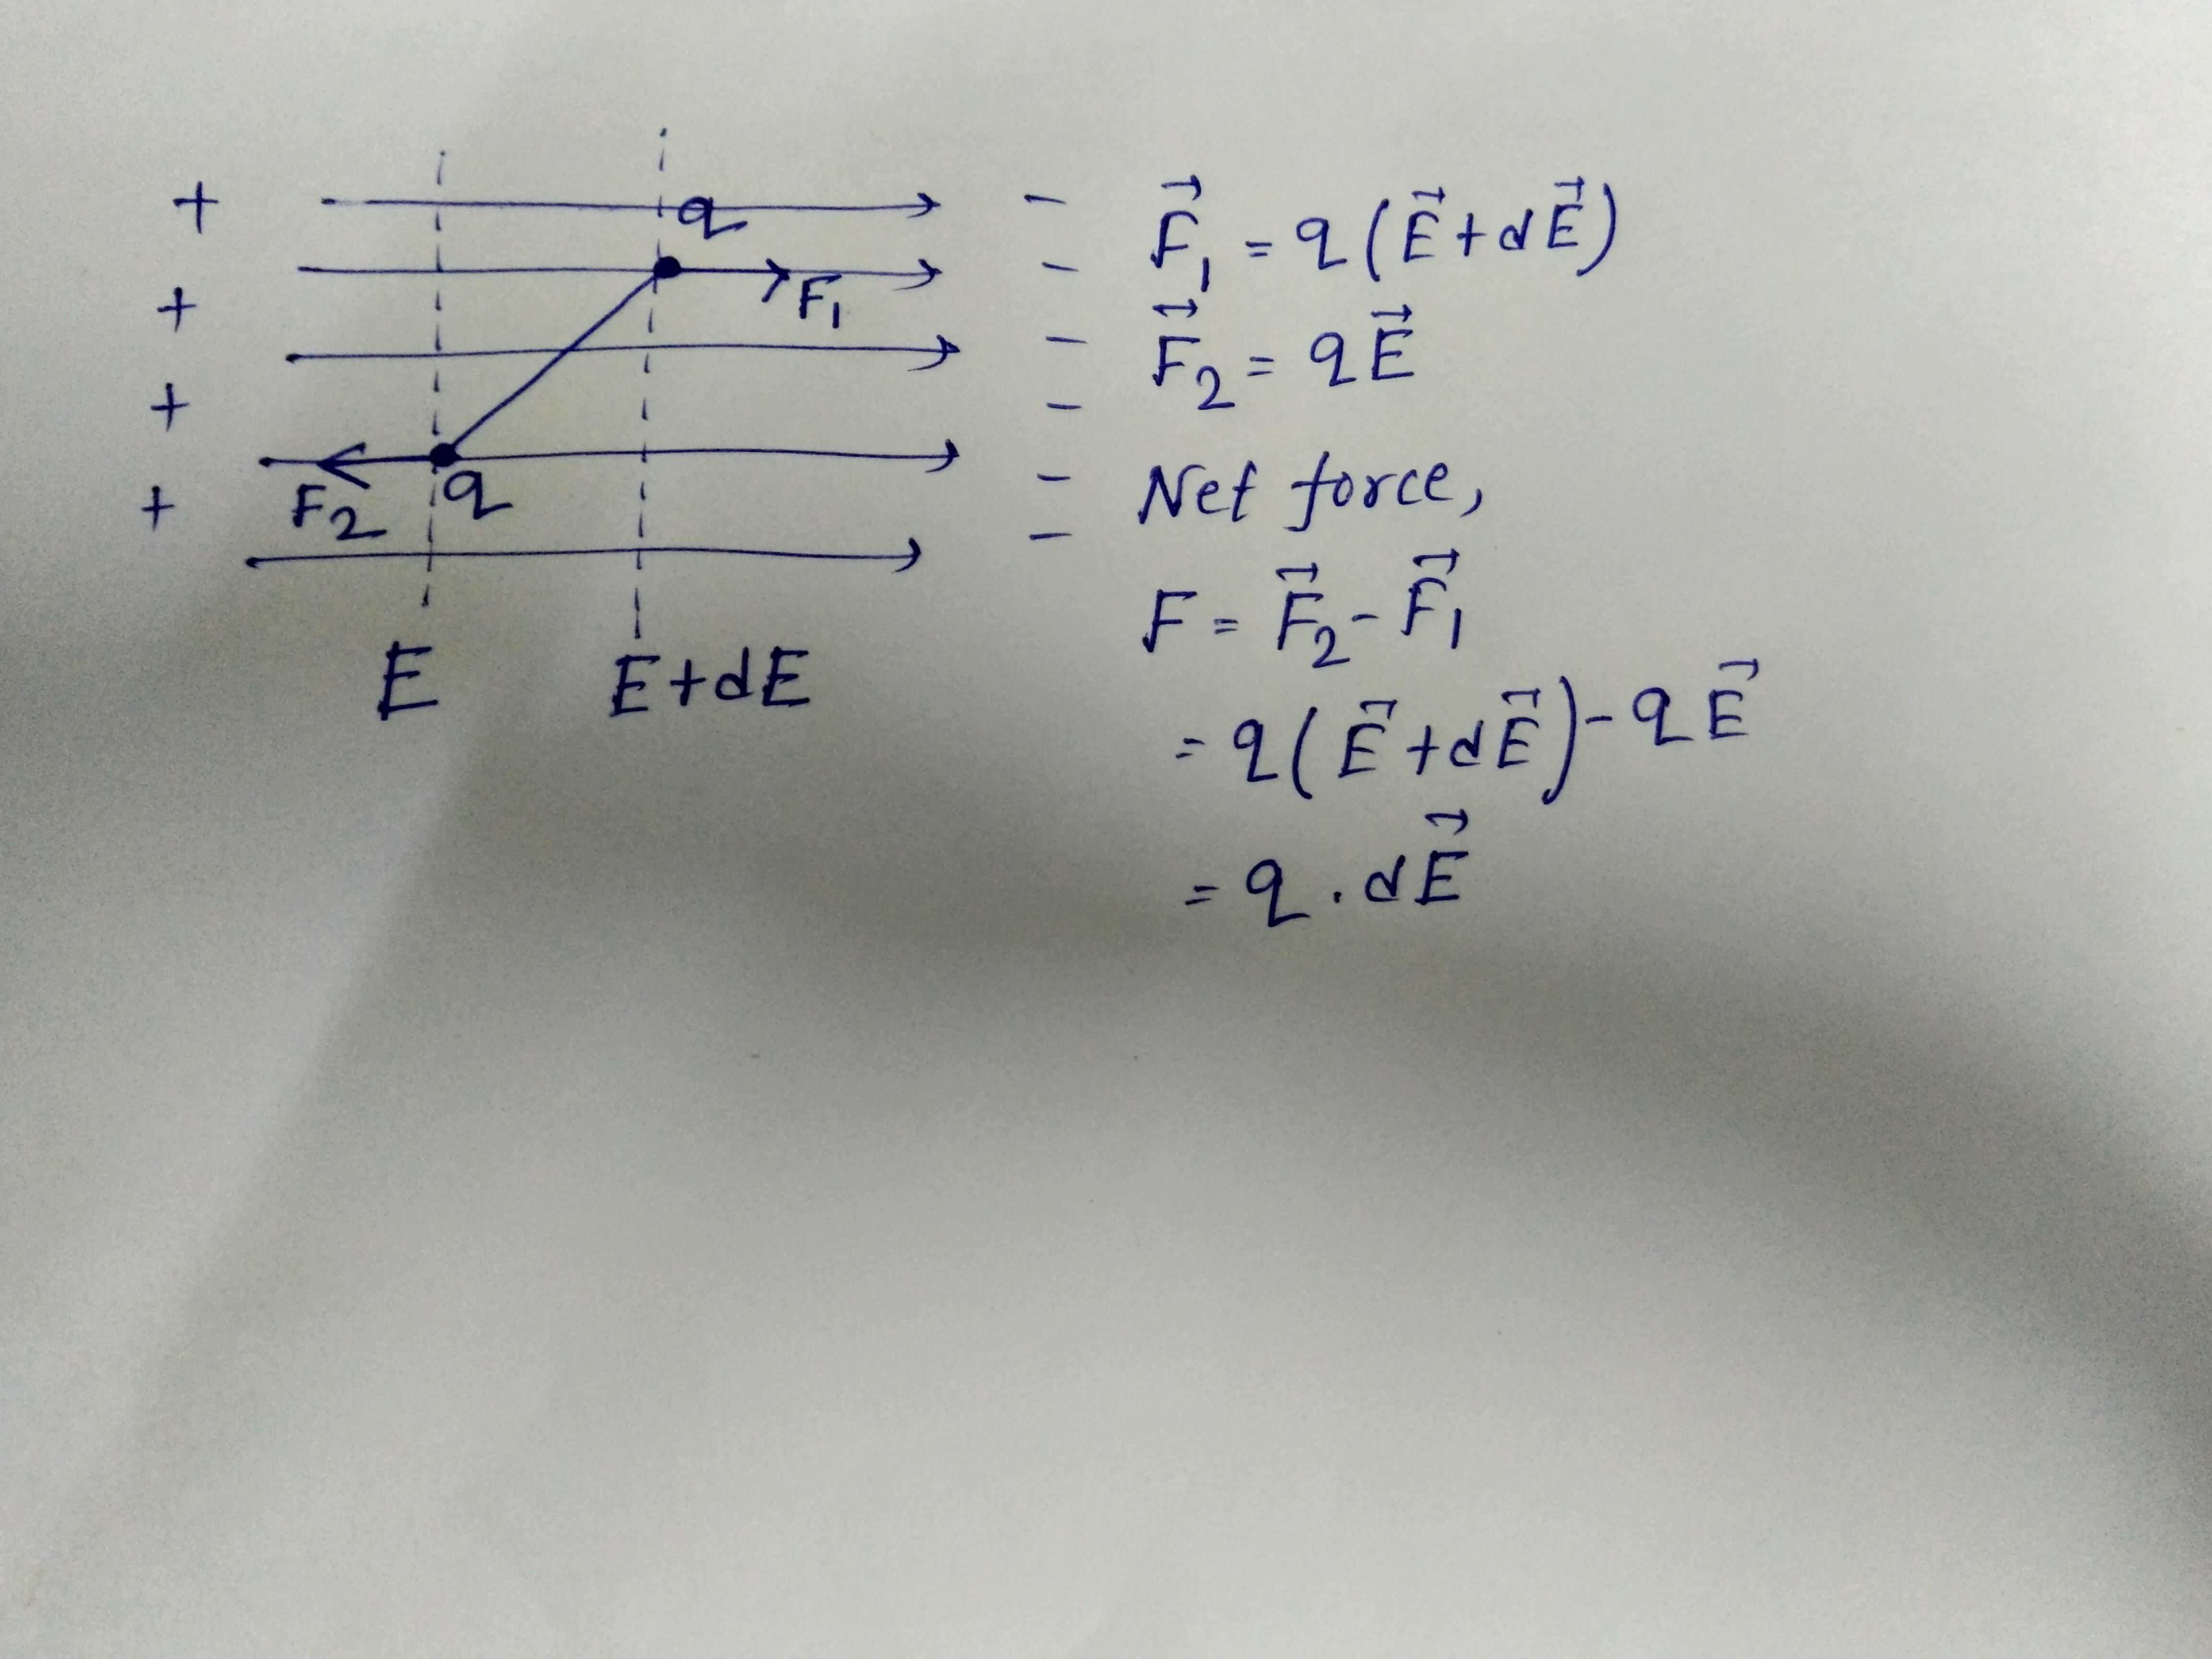 + q -
+ F₁ -
+ -
+ F₂ q -
-
-
E E+dE
F⃗₁ = q(E⃗+dE⃗)
F⃗₂ = qE⃗
Net force,
F = F⃗₂ - F⃗₁
= q(E⃗+dE⃗) - qE⃗
= q . dE⃗